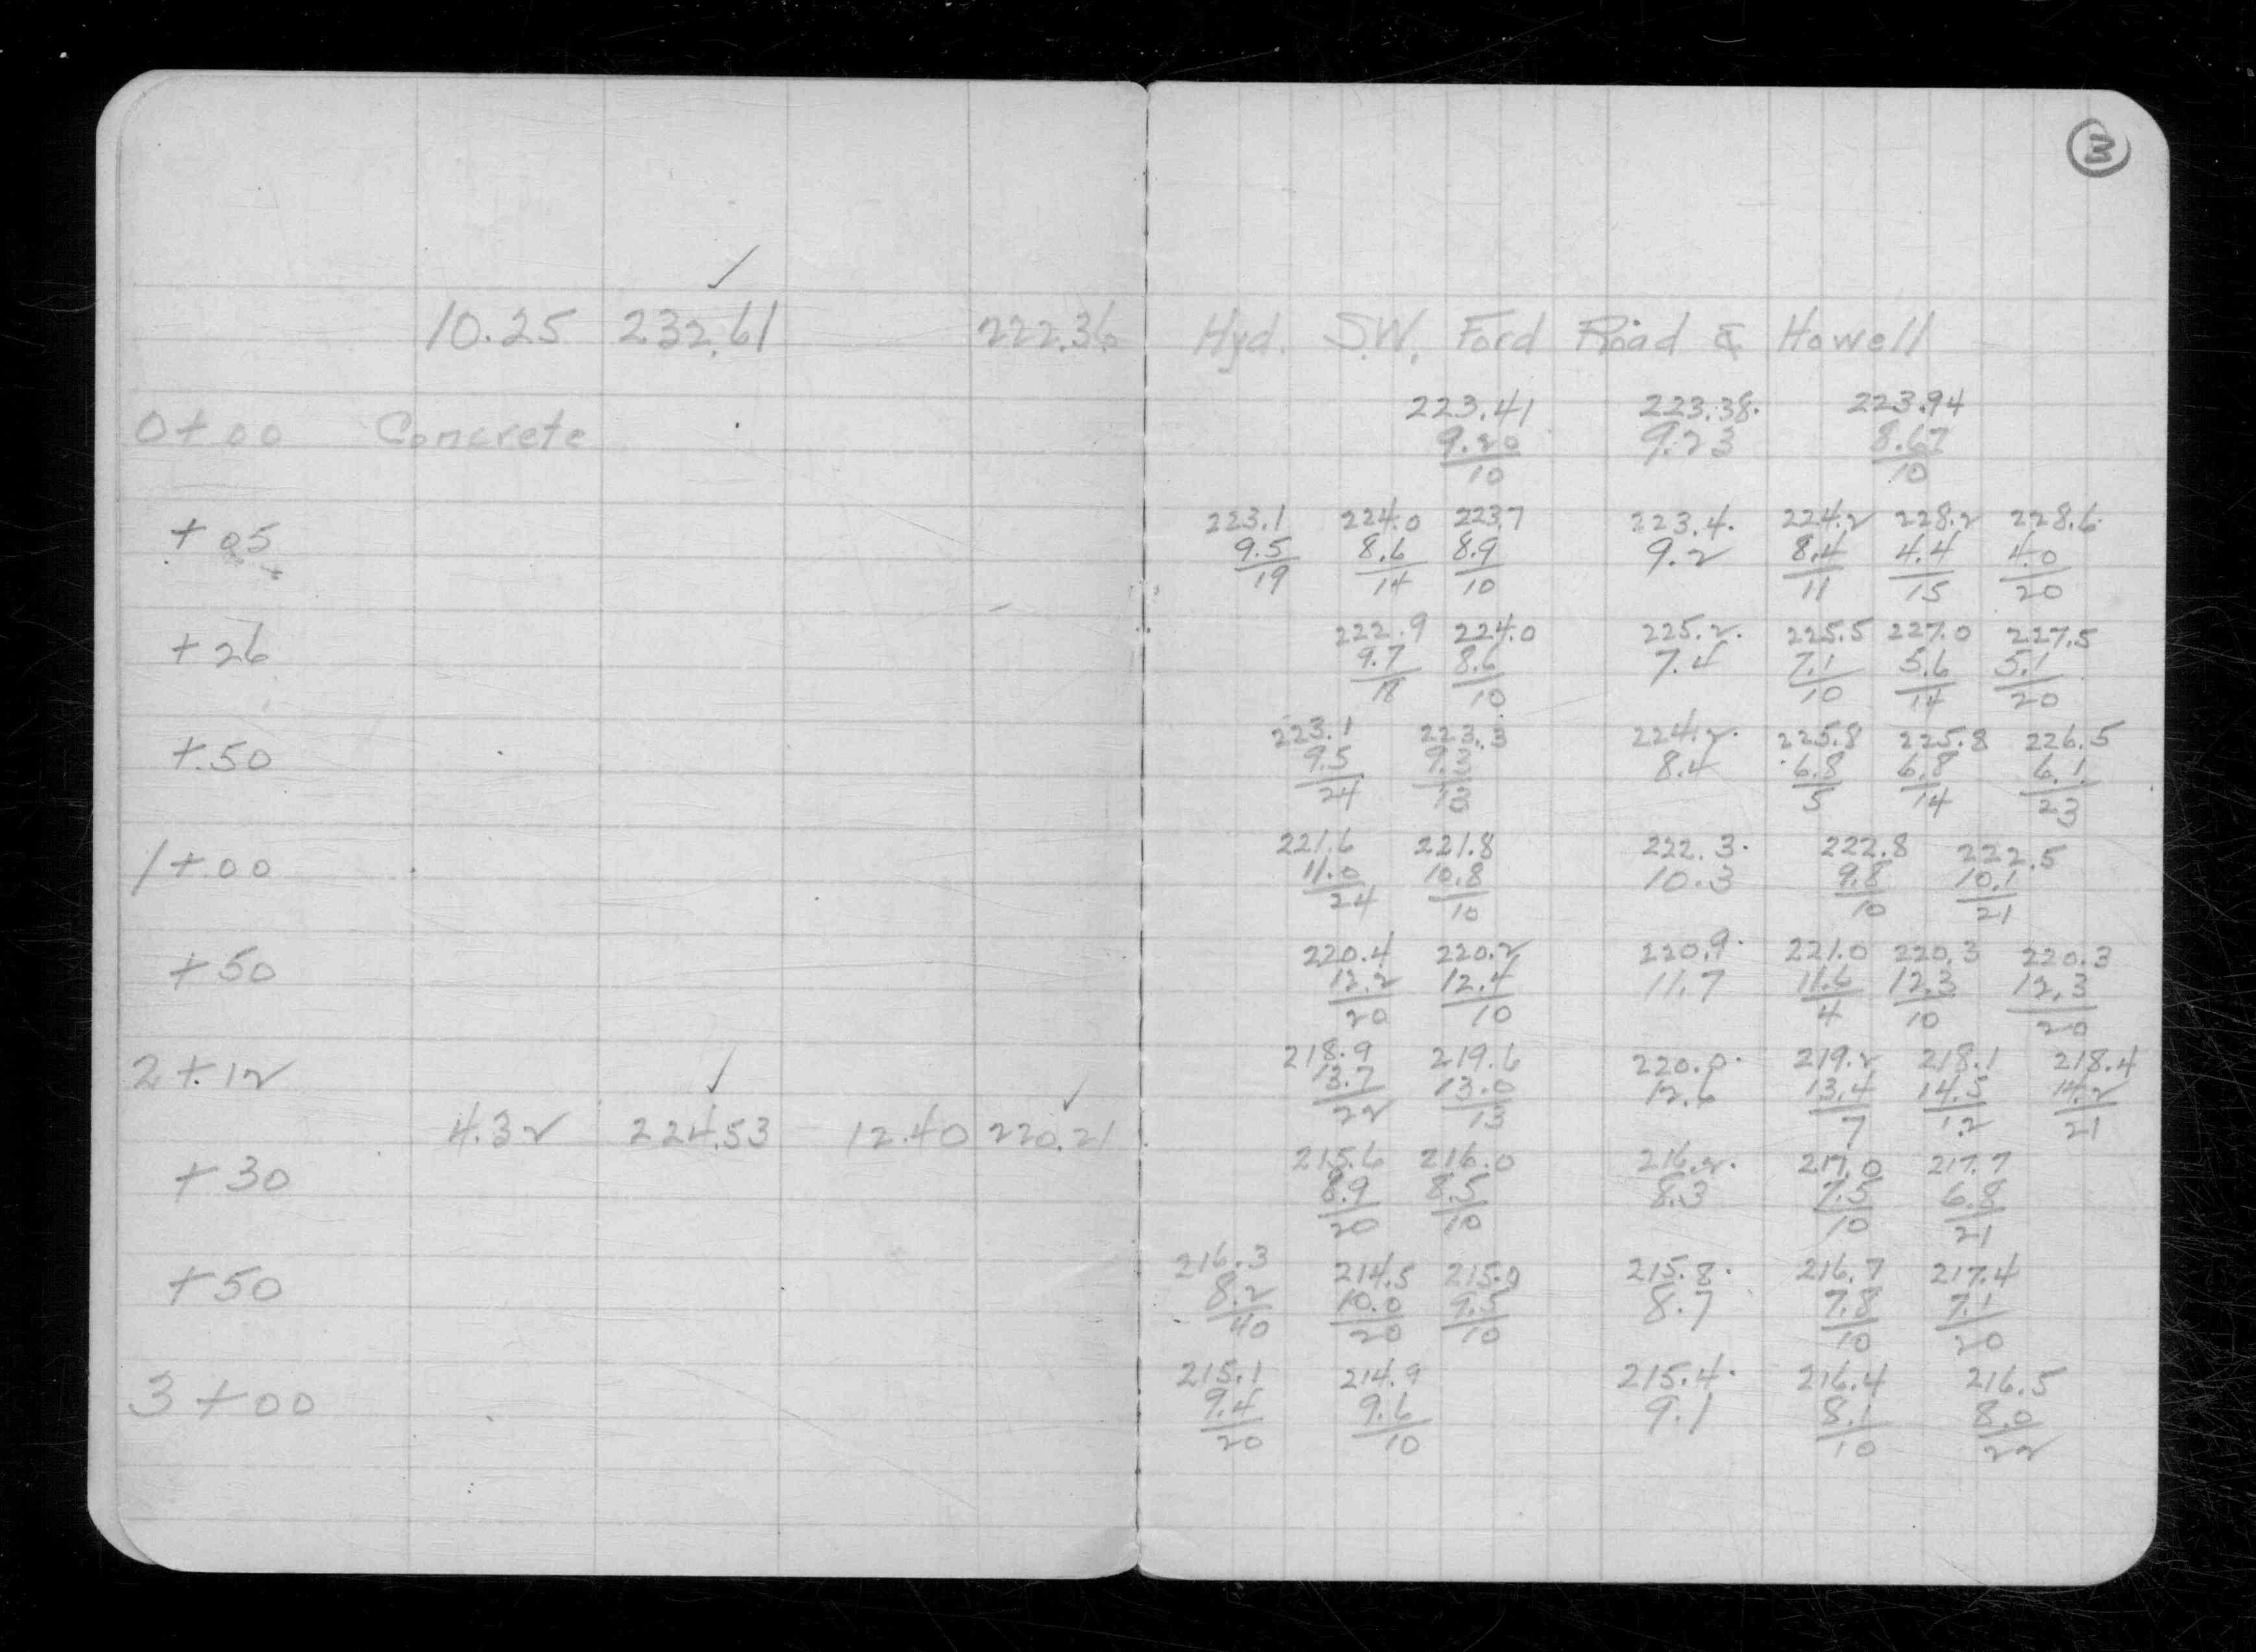 3
10.25 232.61 222.36 Hyd. S.W. Ford Road & Howell
223.41 223.38 223.94
0+00 Concrete 9.20 9.23 8.67
10 10
223.1 224.0 223.7 223.4 224.2 228.2 228.6
+05 9.5 8.6 8.9 9.2 8.4 4.4 4.0
19 14 10 11 15 20
222.9 224.0 225.2 225.5 227.0 227.5
+26 9.7 8.6 7.4 7.1 5.6 5.1
18 10 10 14 20
223.1 223.3 224.2 225.8 225.8 226.5
+50 9.5 9.3 8.4 6.8 6.8 6.1
24 13 5 14 23
221.6 221.8 222.3 222.8 222.5
1+00 11.0 10.8 10.3 9.8 10.1
24 10 10 21
220.4 220.2 220.9 221.0 220.3 220.3
+50 12.2 12.4 11.7 11.6 12.3 12.3
20 10 4 10 20
218.9 219.6 220.0 219.2 218.1 218.4
2+12 13.7 13.0 12.6 13.4 14.5 14.2
22 13 7 12 21
4.32 224.53 12.40 220.21
215.6 216.0 216.2 217.0 217.7
+30 8.9 8.5 8.3 7.5 6.8
20 10 10 21
216.3 214.5 215.0 215.8 216.7 217.4
+50 8.2 10.0 9.5 8.7 7.8 7.1
40 20 10 10 20
215.1 214.9 215.4 216.4 216.5
3+00 9.4 9.6 9.1 8.1 8.0
20 10 10 22